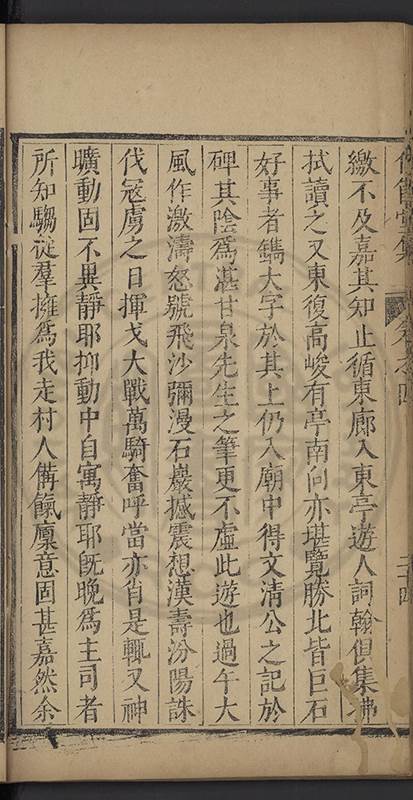 繳不及嘉其知止循東廊入東亭遊人詞翰俱集拂
拭讀之又東復高峻有亭南向亦堪覽勝北皆巨石
好事者鐫大字於其上仍入廟中得文清公之記於
碑其陰爲湛甘泉先生之筆更不虛此遊也過午大
風作激濤怒號飛沙彌漫石巖撼震想漢壽汾陽誅
伐寇虜之日揮戈大戰萬騎奮呼當亦肖是輒又神
曠動固不異靜耶抑動中自寓靜耶旣晚爲主司者
所知騶從羣擁爲我走村人備餼廩意固甚嘉然余